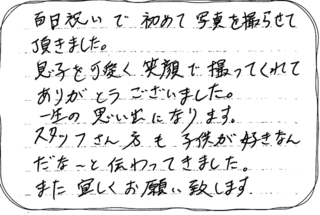 百日祝いで初めて写真を撮らせて
頂きました。
息子を可愛く笑顔で撮ってくれて
ありがとうございました。
一生の思い出になります。
スタッフさん方も子供が好きなん
だな〜と伝わってきました。
また宜しくお願い致します